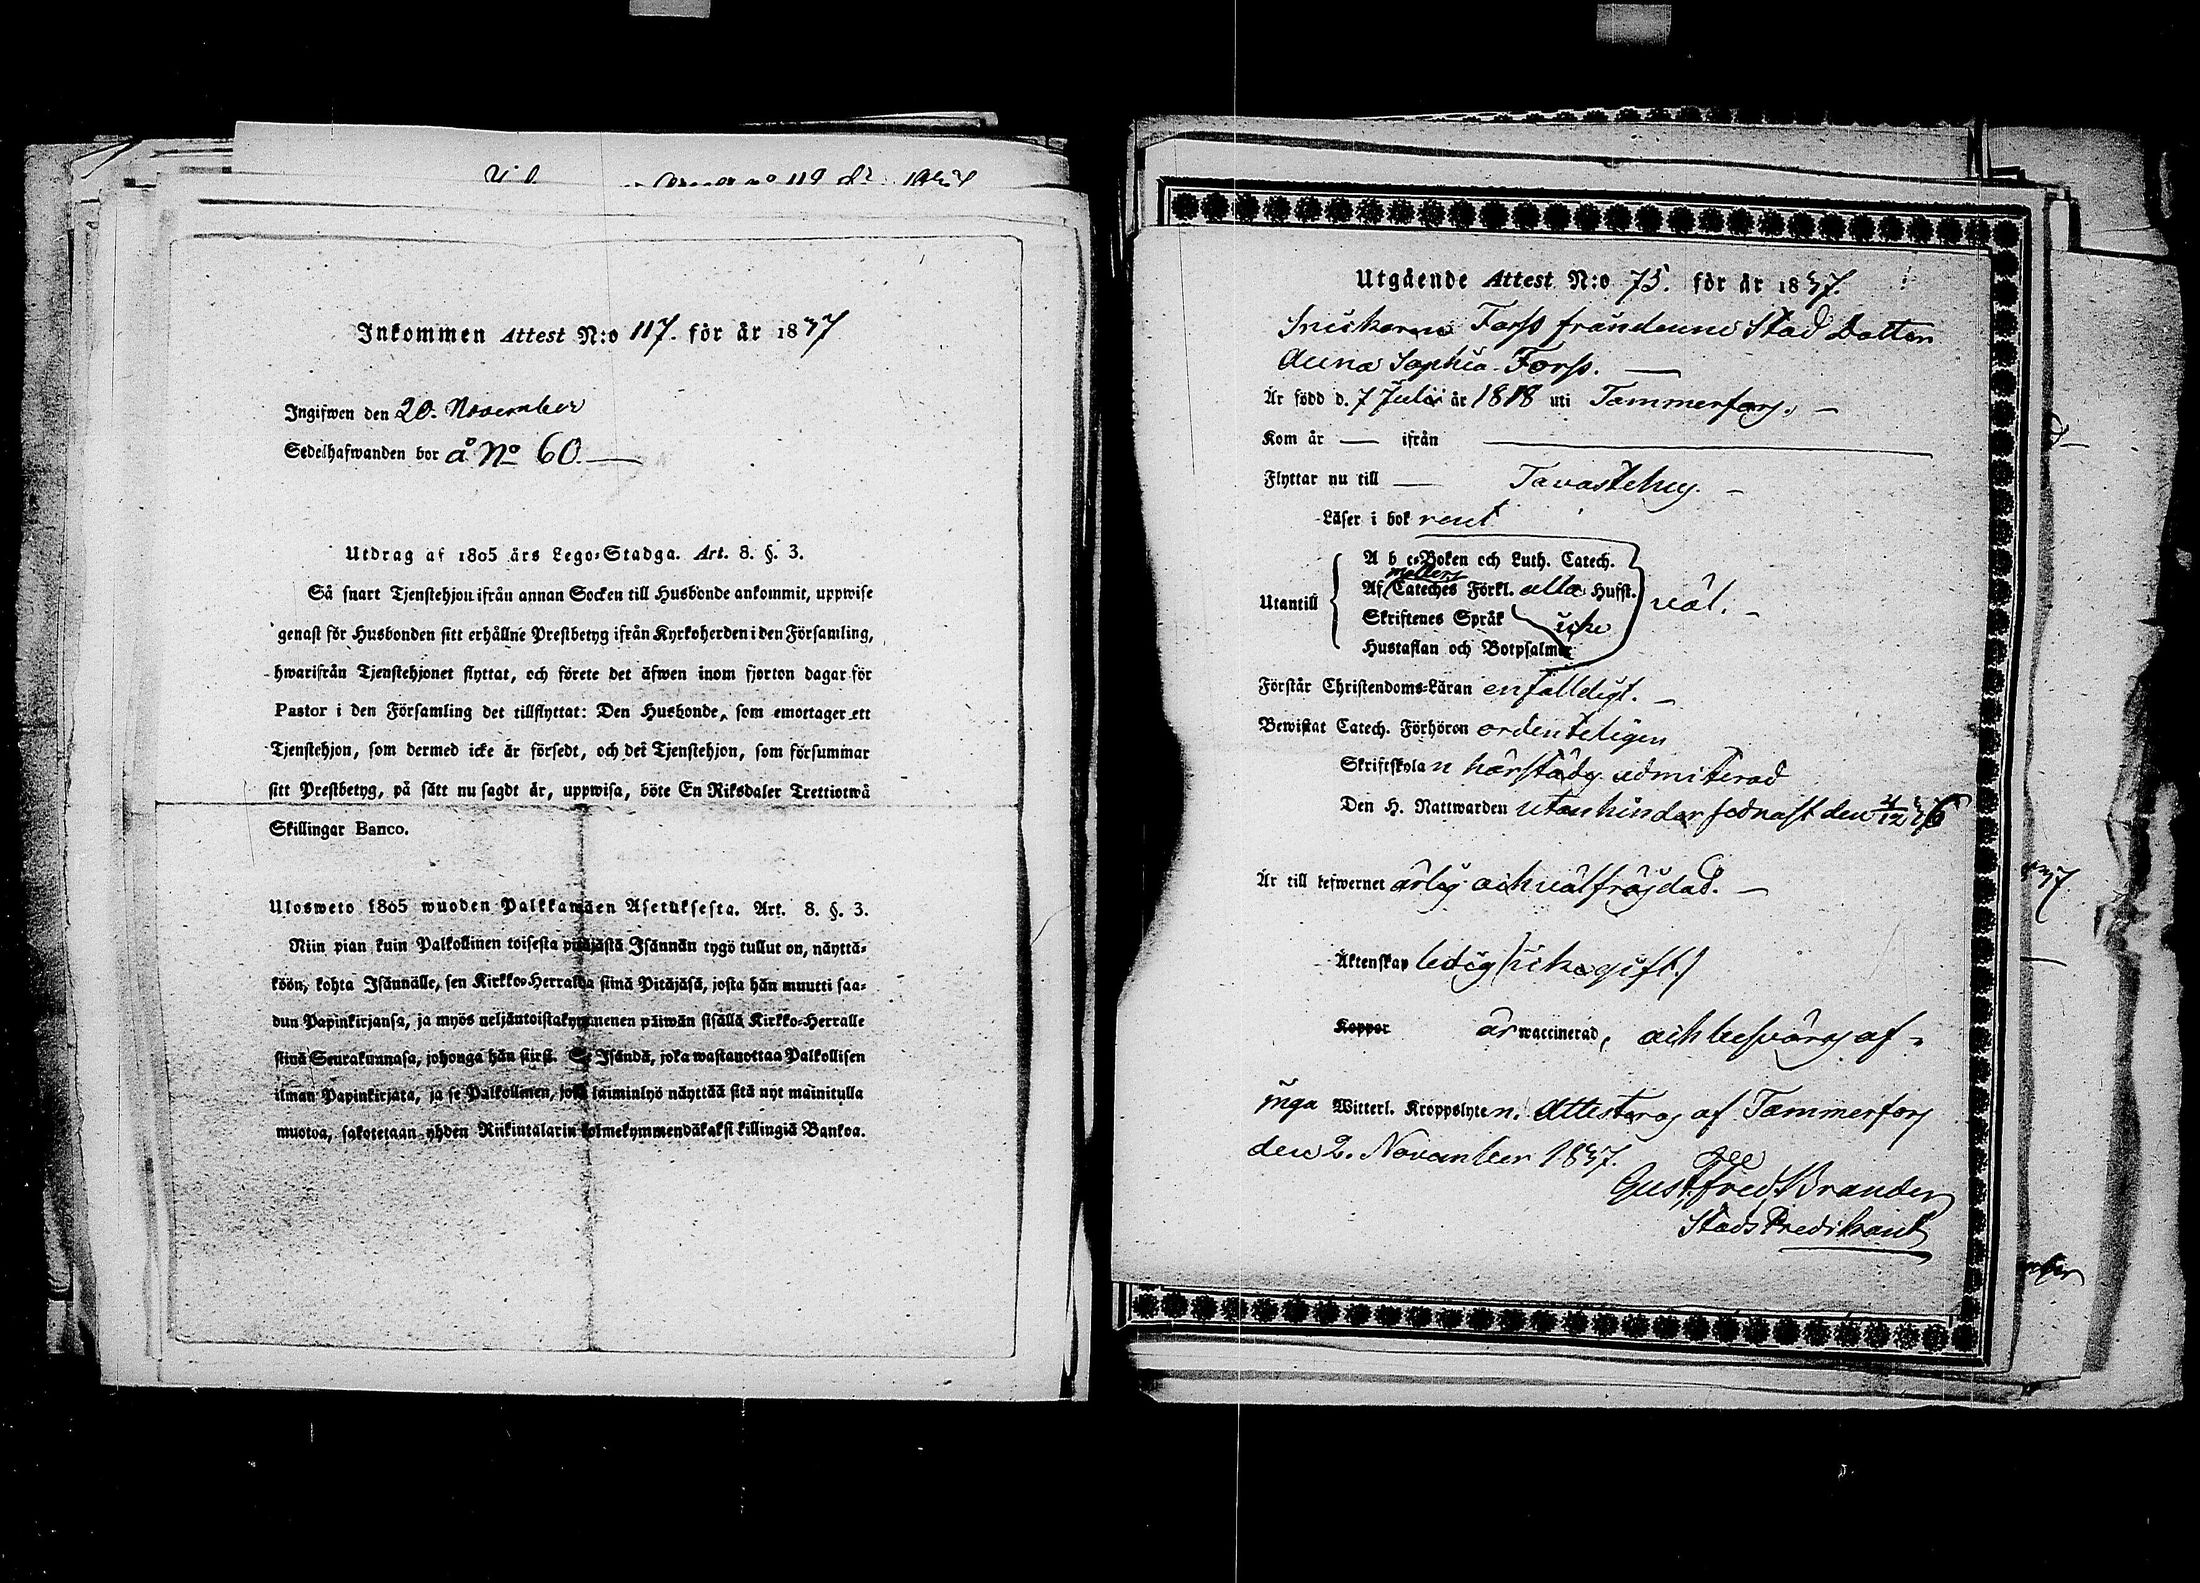 Inkommen Attest N:o 117. för år 1837
Ingifwen den 20. November
Sedelhafwanden bor å No 60.
Utdrag af 1805 års Lego-Stadga. Art. 8. §. 3.
Så snart Tjenstehjon ifrån annan Socken till Husbonde ankommit, uppwise
genast för Husbonden sitt erhållne Prestbetyg ifrån Kyrkoherden i den Församling,
hwarifrån Tjenstehjonet flyttat, och förete det äfwen inom fjorton dagar för
Pastor i den Församling det tillflyttat: Den Husbonde, som emottager ett
Tjenstehjon, som dermed icke är försedt, och det Tjenstehjon, som försummar
sitt Prestbetyg, på sätt nu sagdt är, uppwisa, böte En Riksdaler Trettiotwå
Skillingar Banco.
Ulosweto 1865 wuoden Palkkawäen Asetuksesta. Art. 8. §. 3.
Niin pian kuin Palkollinen toisesta pitäjästä Isännän tygö tullut on, näyttä-
köön, kohta Isännälle, sen Kirkko-Herralda siinä Pitäjäsä, josta hän muutti saa-
dun Papinkirjansa, ja myös neljäntoistakymmenen päiwän sisällä Kirkko-Herralle
siinä Seurakunnasa, johonga hän siirsi. Se Isändä, joka wastanottaa Palkollisen
ilman Papinkirjata, ja se Palkollinen, joka laiminlyö näyttää sitä nyt mainitulla
muotoa, sakotetaan yhden Riikintalarin kolmekymmendäkaksi killingiä Bankoa.
Utgående Attest N:o 75. för år 1837.
Snickaren Forss frånderne Stad Dotter
Anna Sophia Forss.
Är född d. 7 Julii år 1818 uti Tammerfors.
Kom år — ifrån
Flyttar nu till — Tavastehus.
Läser i bok rent
A b c-Boken och Luth. Catech.
Af Cateches Förkl. alla Hufst.
Utantill väl.
Skriftenes Språk icke
Hustaflan och Botpsalmer
Förstår Christendoms-Läran enfalldigt.
Bewistat Catech. Förhören ordenteligen
Skriftskolan härstädes admitterad
Den H. Nattwarden utan hinder sednast den 21/12 36
Är till lefwernet ärlig och välfräjdad.
Äktenskap ledig (icke gift.)
Koppor är waccinerad, och besväras af
inga Witterl. Kroppslyten. Attesteras af Tammerfors
den 2. November 1837.
Gust. Fred. Brander
Stads Predikant